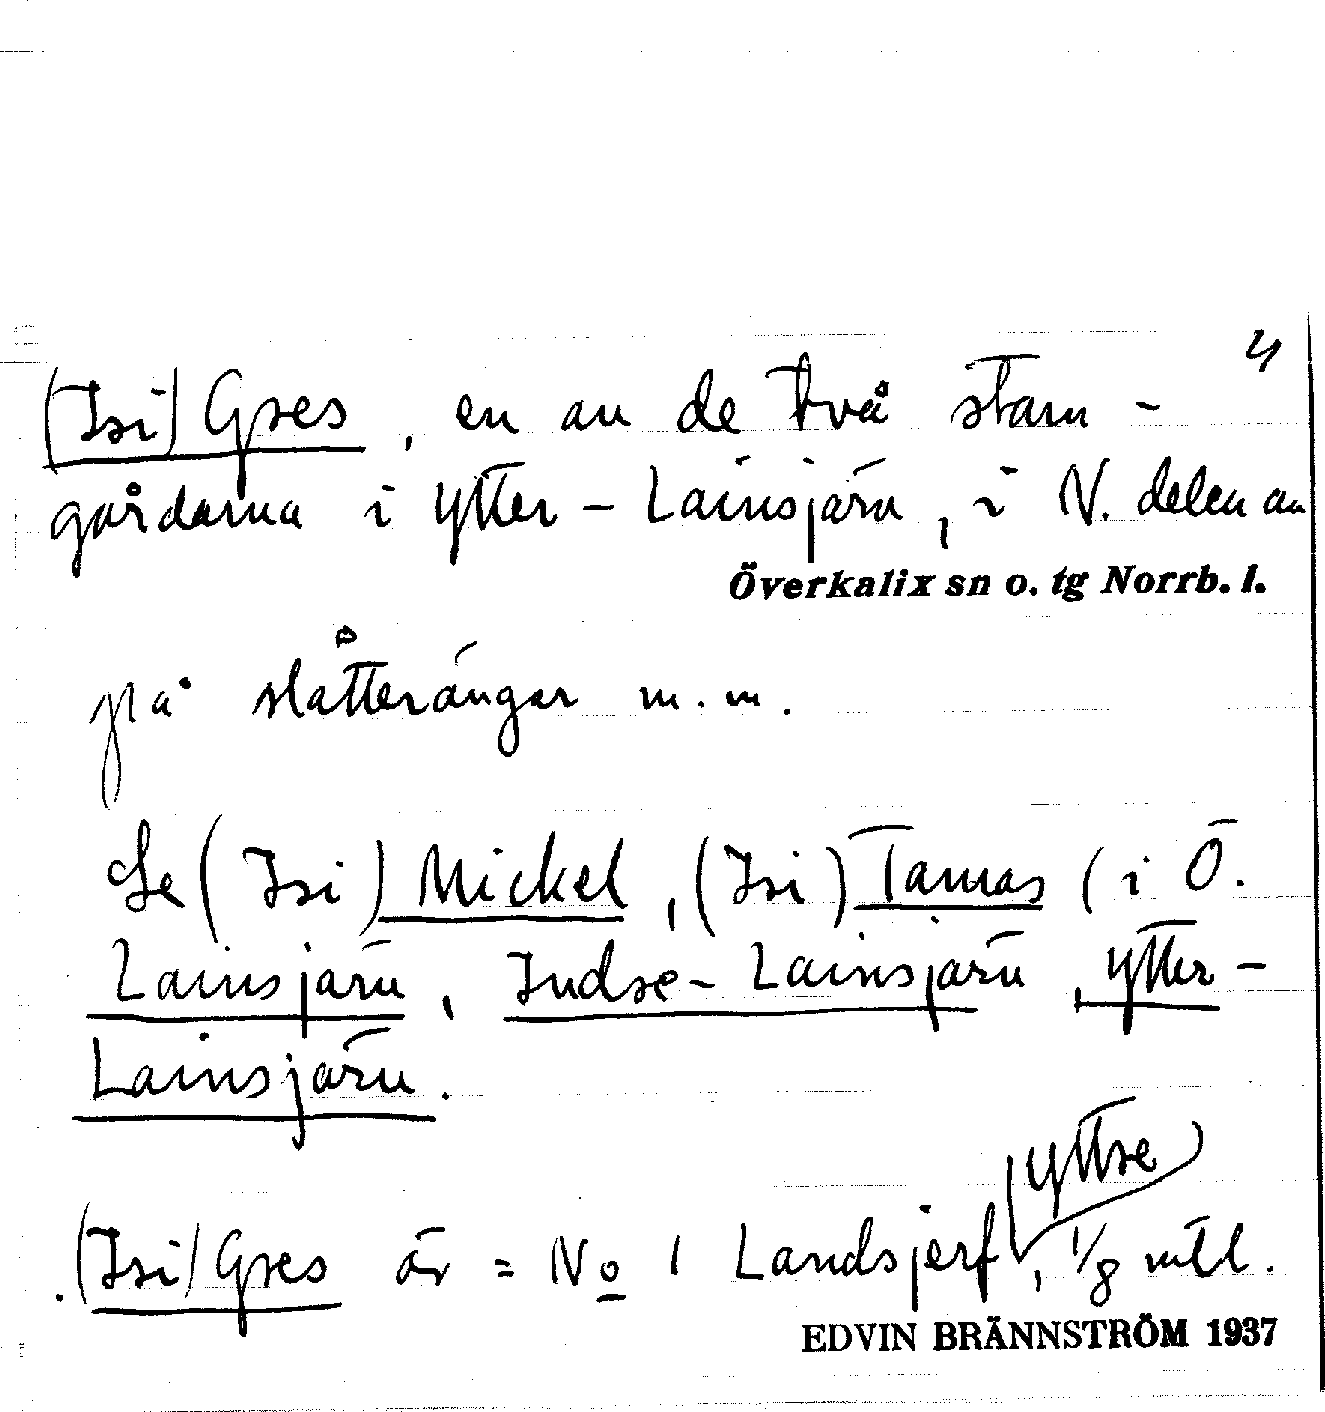 4
(Isi) Gres, en av de två stam-
gårdarna i Ytter-Lainsjärv, i N. delen av
Överkalix sn o. tg Norrb. l.
på slåtterängar m.m.
Se (Isi) Mickel, (Isi) Tamas (i Ö.
Lainsjärv, Indre-Lainsjärv, Ytter-
Lainsjärv.
yttre
(Isi) Gres är = No 1 Landsjerf, 1/8 mtl.
EDVIN BRÄNNSTRÖM 1937